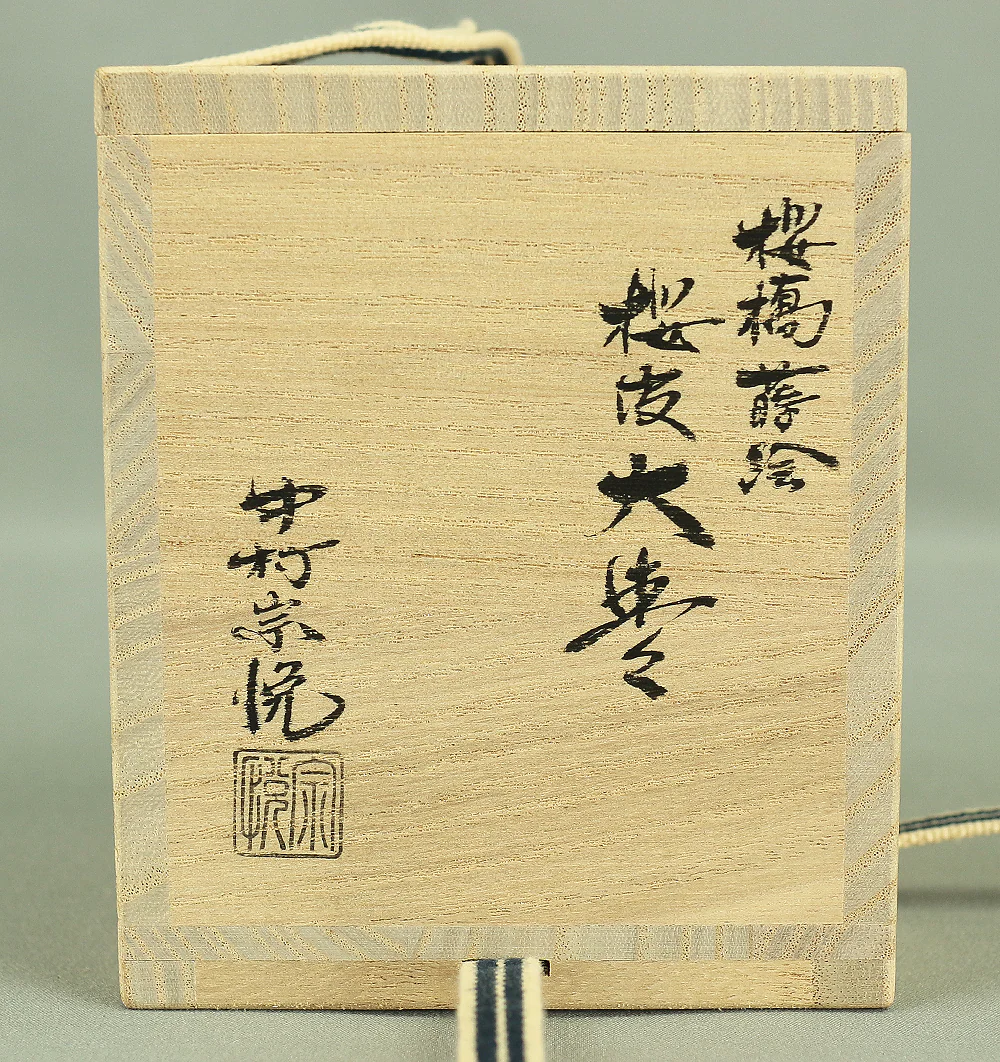 桜橋蒔絵
桜皮大棗
中村宗悦
宗悦